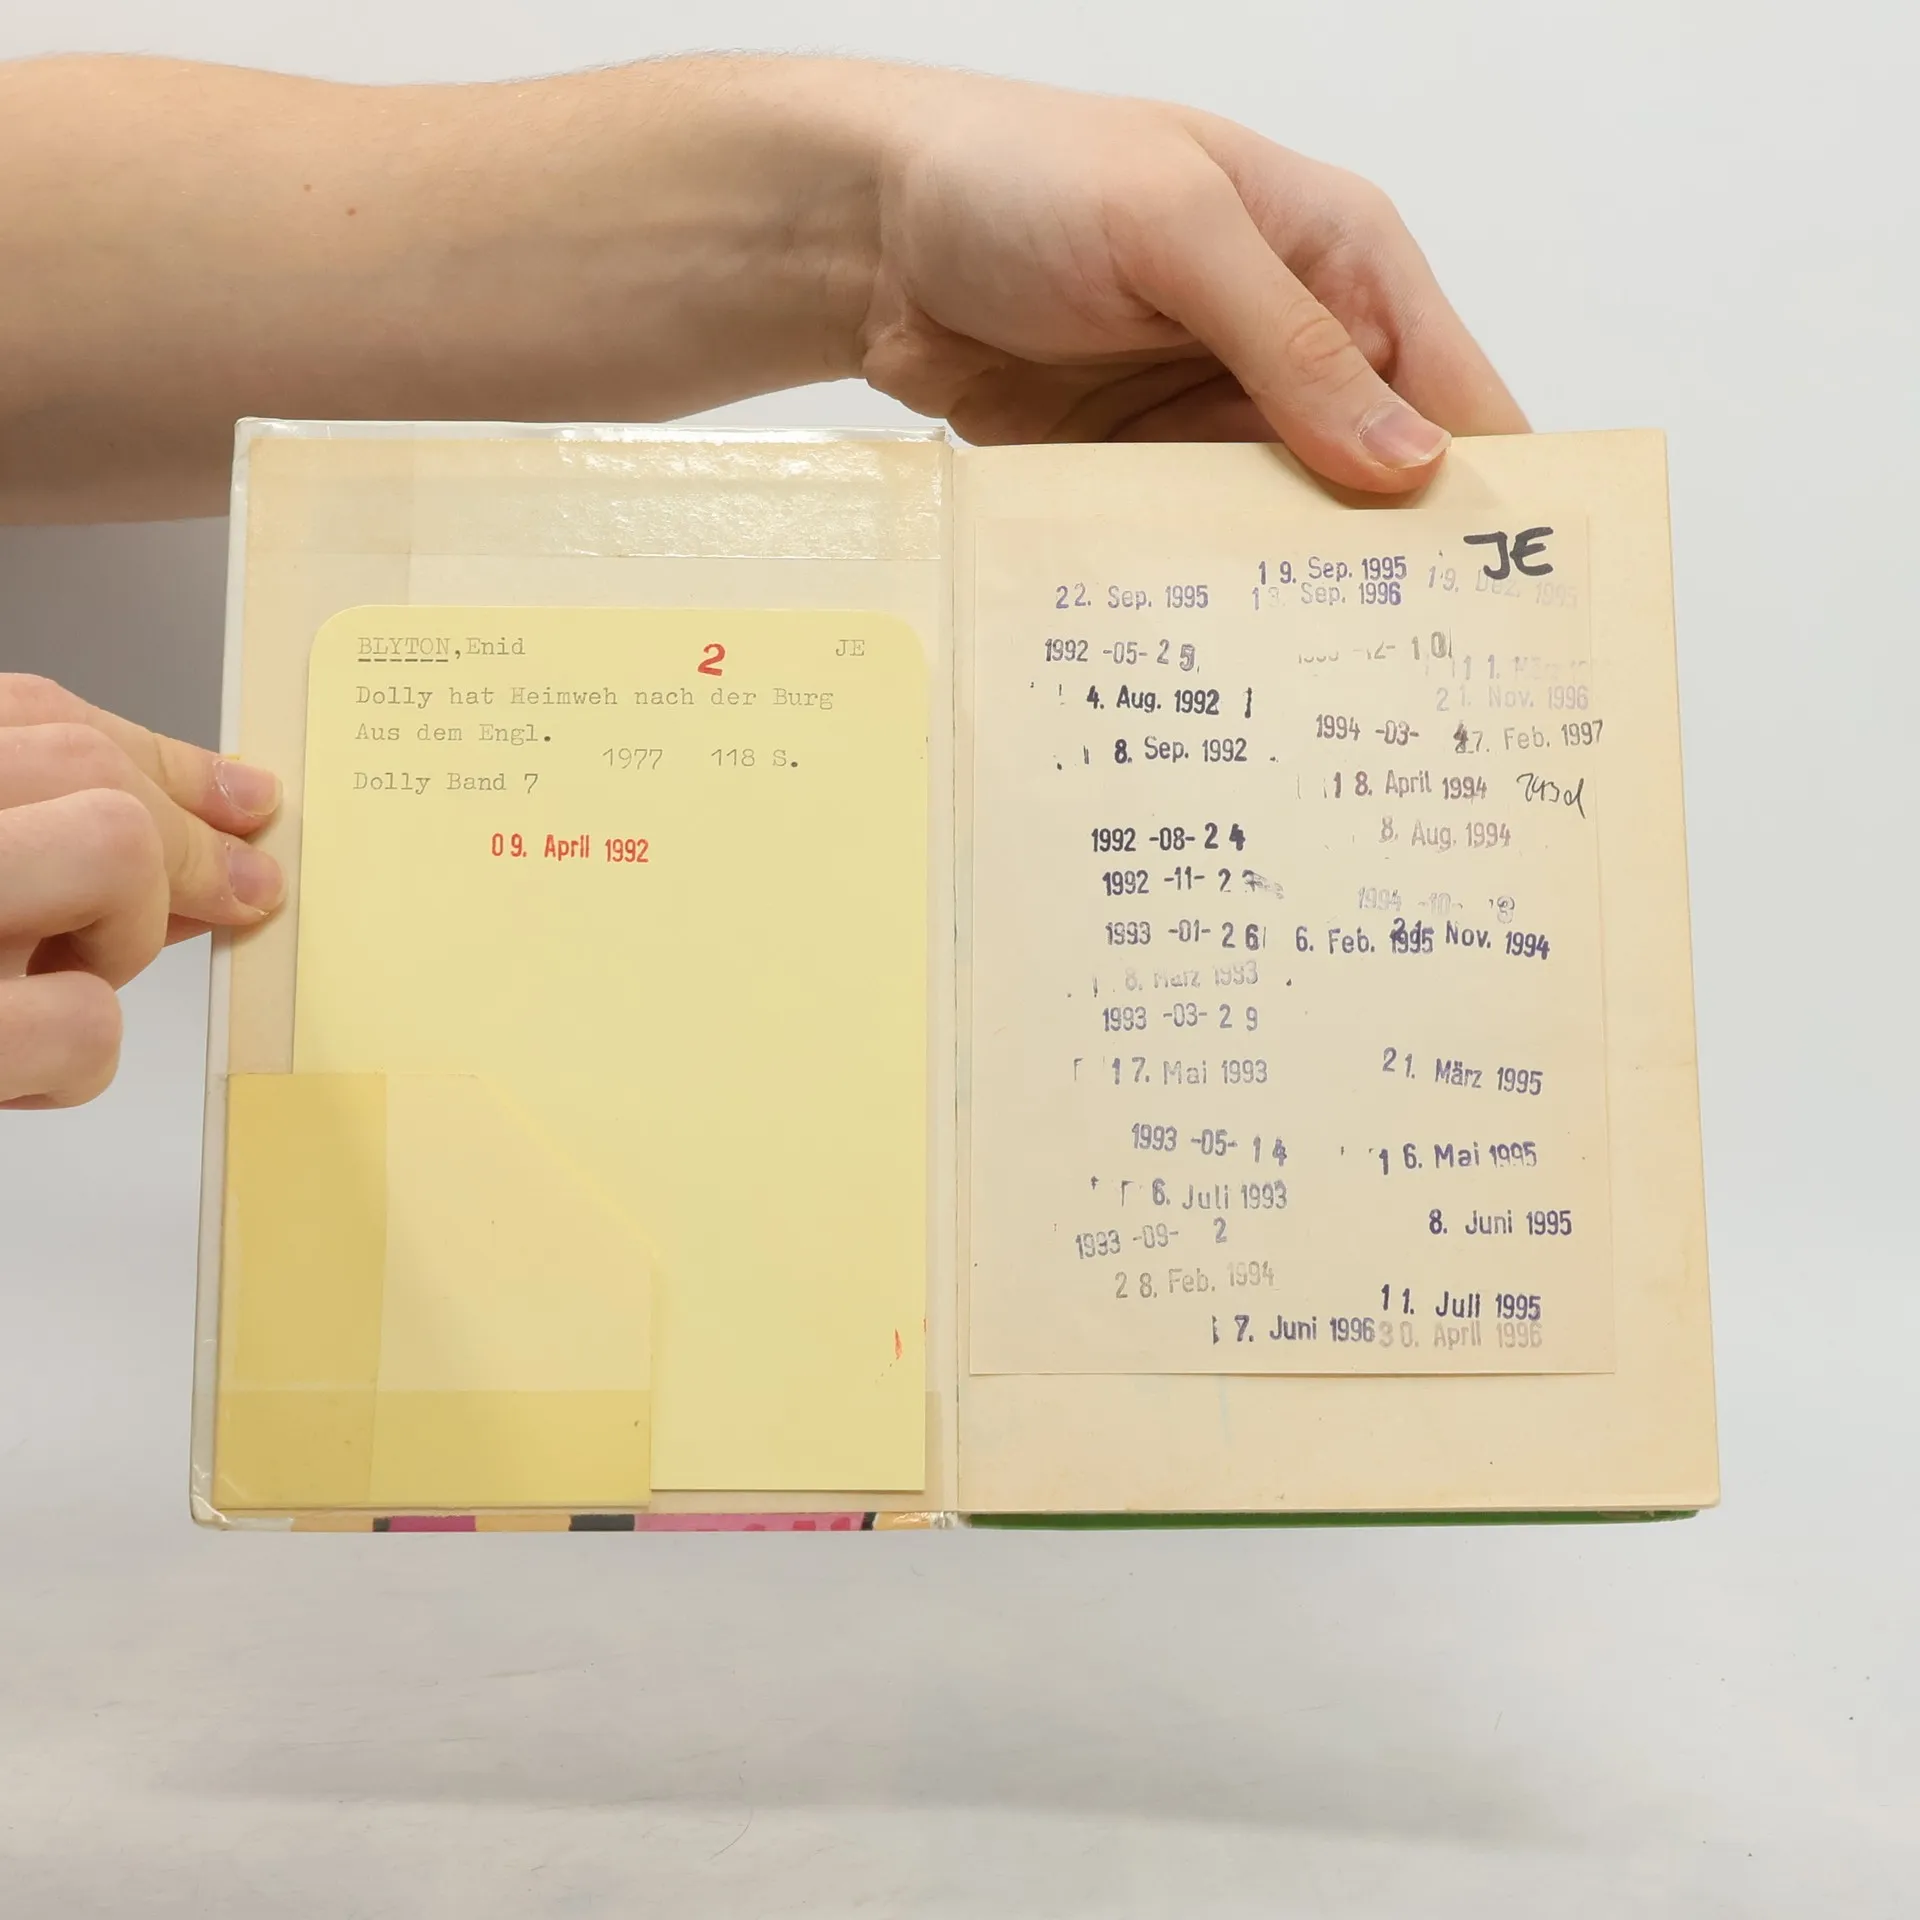 BLYTON,Enid 2 JE
Dolly hat Heimweh nach der Burg
Aus dem Engl.
1977 118 S.
Dolly Band 7
09. April 1992
JE
19. Sep. 1995
22. Sep. 1995
Sep. 1996
19. Dez. 1995
1992 -05- 2
-12- 10
11. März
21. Nov. 1996
4. Aug. 1992
1994 -03-
7. Feb. 1997
8. Sep. 1992
18. April 1994
1992 -08- 24
8. Aug. 1994
1992 -11- 2
1994 -10- 3
1993 -01- 26
6. Feb. 1995
21. Nov. 1994
8. März 1993
1993 -03- 29
17. Mai 1993
21. März 1995
1993 -05- 14
16. Mai 1995
6. Juli 1993
8. Juni 1995
1993 -09- 2
28. Feb. 1994
11. Juli 1995
7. Juni 1996
30. April 1996